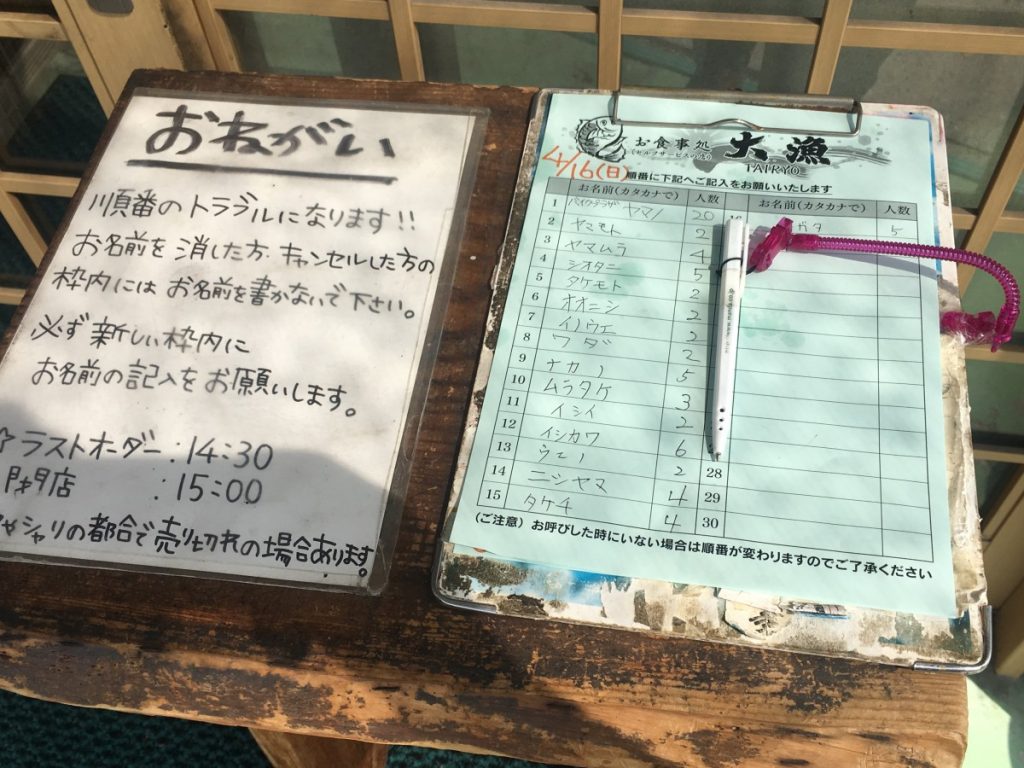 おねがい
順番のトラブルになります!!
お名前を消した方、キャンセルした方の
枠内にはお名前を書かないで下さい。
必ず新しい枠内に
お名前の記入をお願いします。
☆ラストオーダー:14:30
閉店:15:00
シャリの都合で売り切れの場合あります。
お食事処 大漁
(セルフサービスの店) TAIRYO
4/16(日) 順番に下記へご記入をお願いいたします
お名前(カタカナで) 人数 お名前(カタカナで) 人数
1 ヤマノ 20 16 ガタ 5
2 ヤマモト 2
3 ヤマムラ 4
4 シオタニ 5
5 タケモト 2
6 オオニシ 2
7 イノウエ 2
8 ワダ 2
9 ナカノ 5
10 ムラタケ 3
11 イシイ 2
12 イシカワ 6
13 ウエノ 2 28
14 ニシヤマ 4 29
15 タケチ 4 30
(ご注意) お呼びした時にいない場合は順番が変わりますのでご了承ください